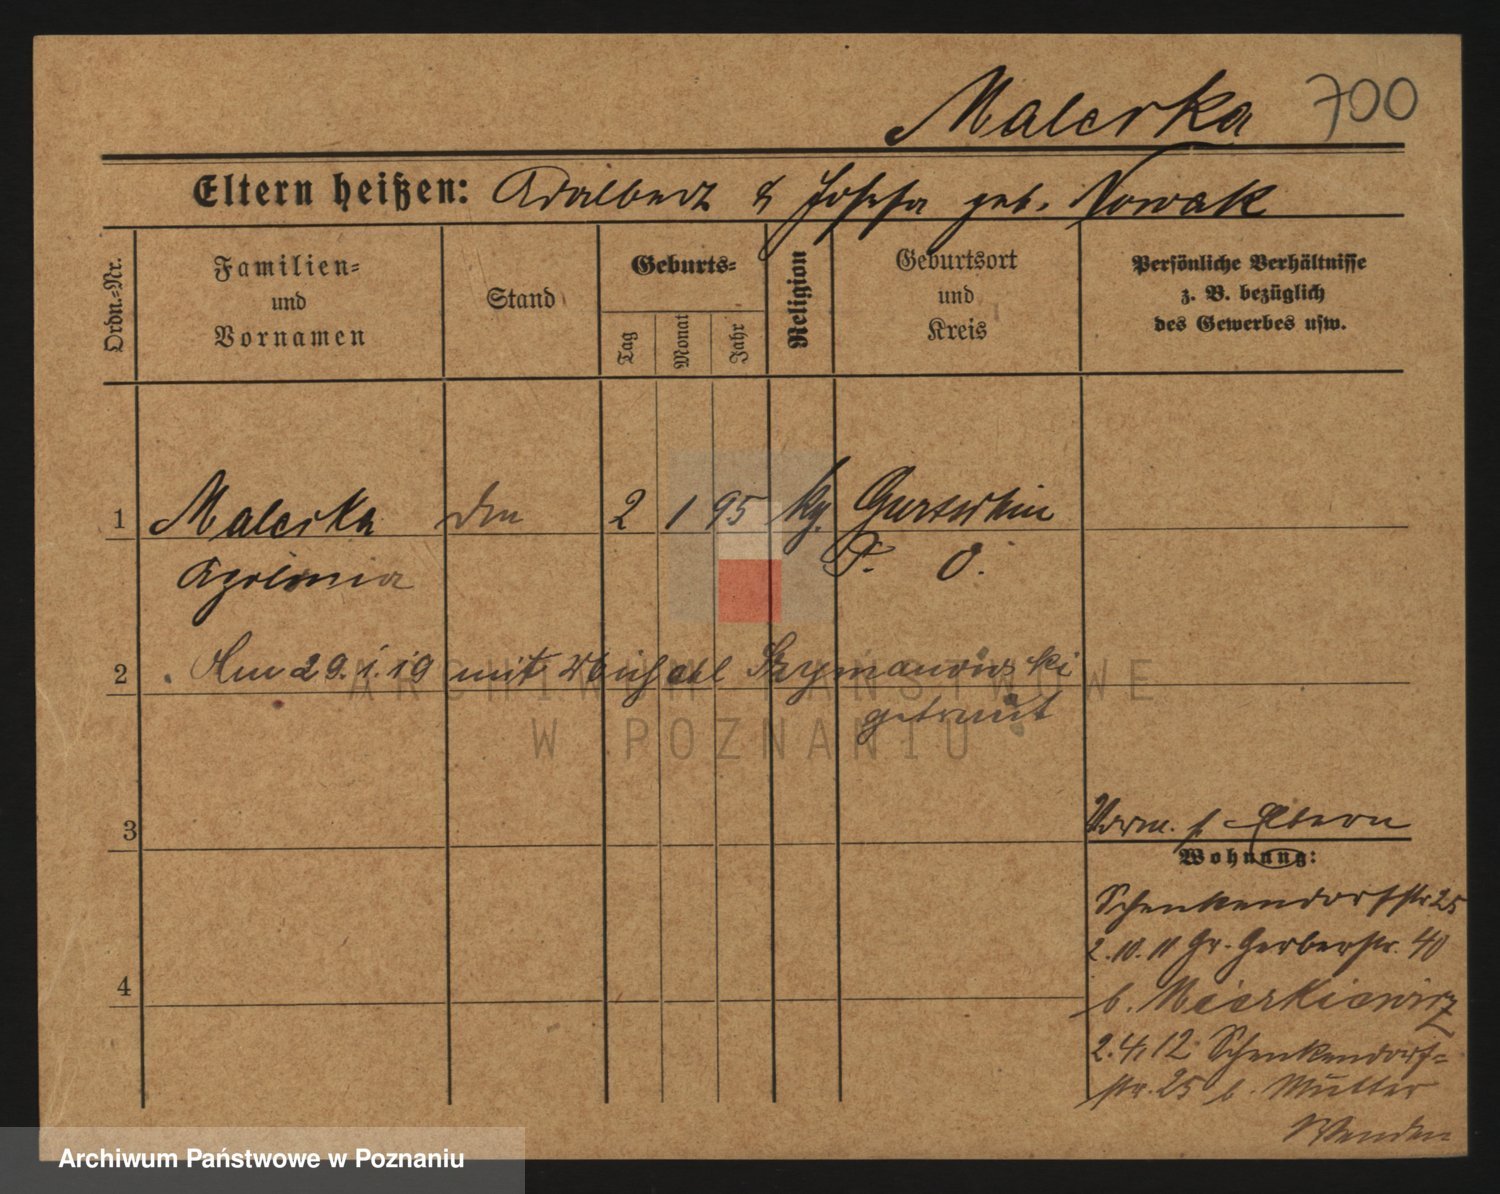 Malerka 700
Eltern heißen: Adalbert & Josefa geb. Nowak
Ordn.=Nr.
Familien=
und
Vornamen
Stand
Geburts=
Tag
Monat
Jahr
Religion
Geburtsort
und
Kreis
Persönliche Verhältnisse
z. B. bezüglich
des Gewerbes usw.
1 Malerka 2 1 95
Apolonia P. O.
2 Am 29.1.19 mit Michael Szymanowski
getraut
ARCHIWUM PAŃSTWOWE
W POZNANIU
3
Eltern
Wohnung:
Schenkendorfstr 25
2.10.11 Gr. Gerberstr. 40
b.
4
2.4.12 Schenkendorf=
str. 25 b. Mutter
Archiwum Państwowe w Poznaniu